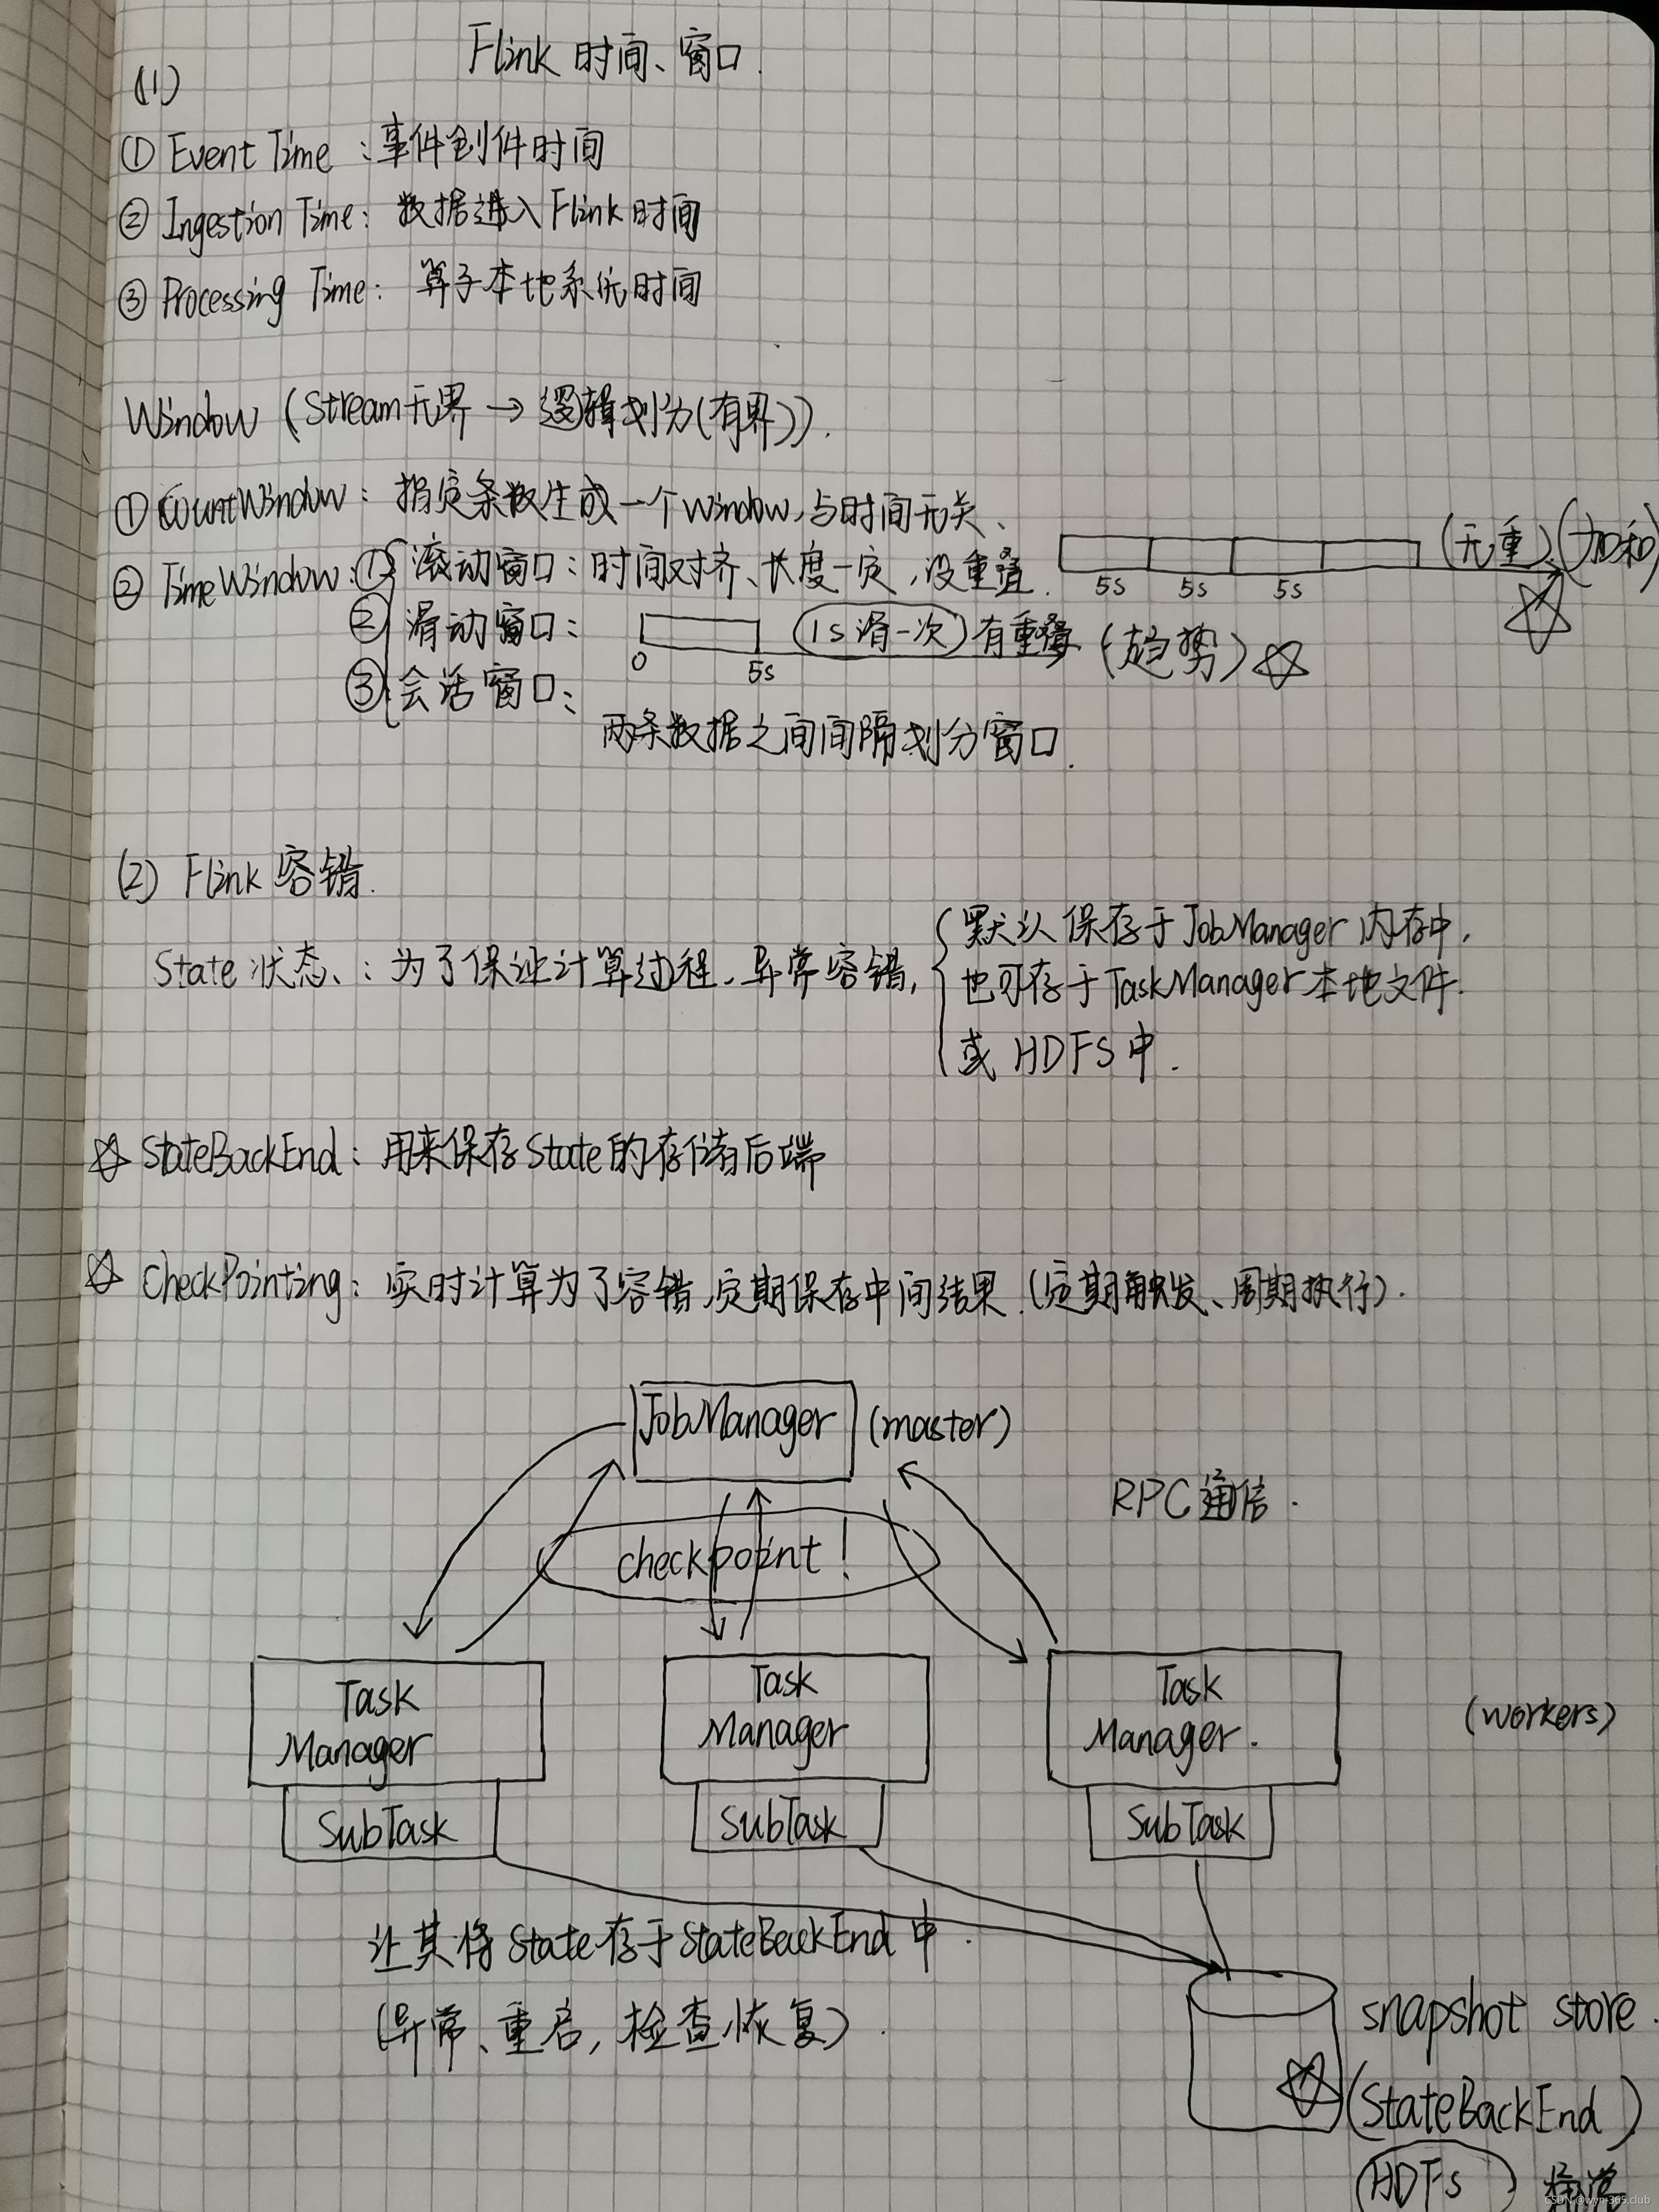 Flink 时间、窗口.
(1)
① Event Time：事件创件时间
② Ingestion Time：数据进入Flink时间
③ Processing Time：算子本地系统时间
Window (Stream无界 → 逻辑划分(有界)).
① CountWindow：指定条数生成一个Window,与时间无关、
② TimeWindow：① 滚动窗口：时间对齐、长度一定,没重叠. (无重)、(加和)
5s 5s 5s
② 滑动窗口： (1s滑一次) 有重叠 (趋势) ☆
0 5s
③ 会话窗口：
两条数据之间间隔划分窗口.
(2) Flink 容错.
State 状态、：为了保证计算过程、异常容错,
默认保存于JobManager内存中,
也可存于TaskManager本地文件.
或 HDFS中.
☆ StateBackEnd：用来保存State的存储后端
☆ CheckPointing：实时计算为了容错,定期保存中间结果.(定期触发、周期执行).
JobManager (master)
RPC通信.
checkpoint!
Task Task Task
Manager Manager Manager. (workers)
SubTask SubTask SubTask
让其将State存于StateBackEnd中.
(异常、重启,检查恢复).
snapshot store.
☆ (StateBackEnd)
(HDFS)
CSDN @wyn-365.club